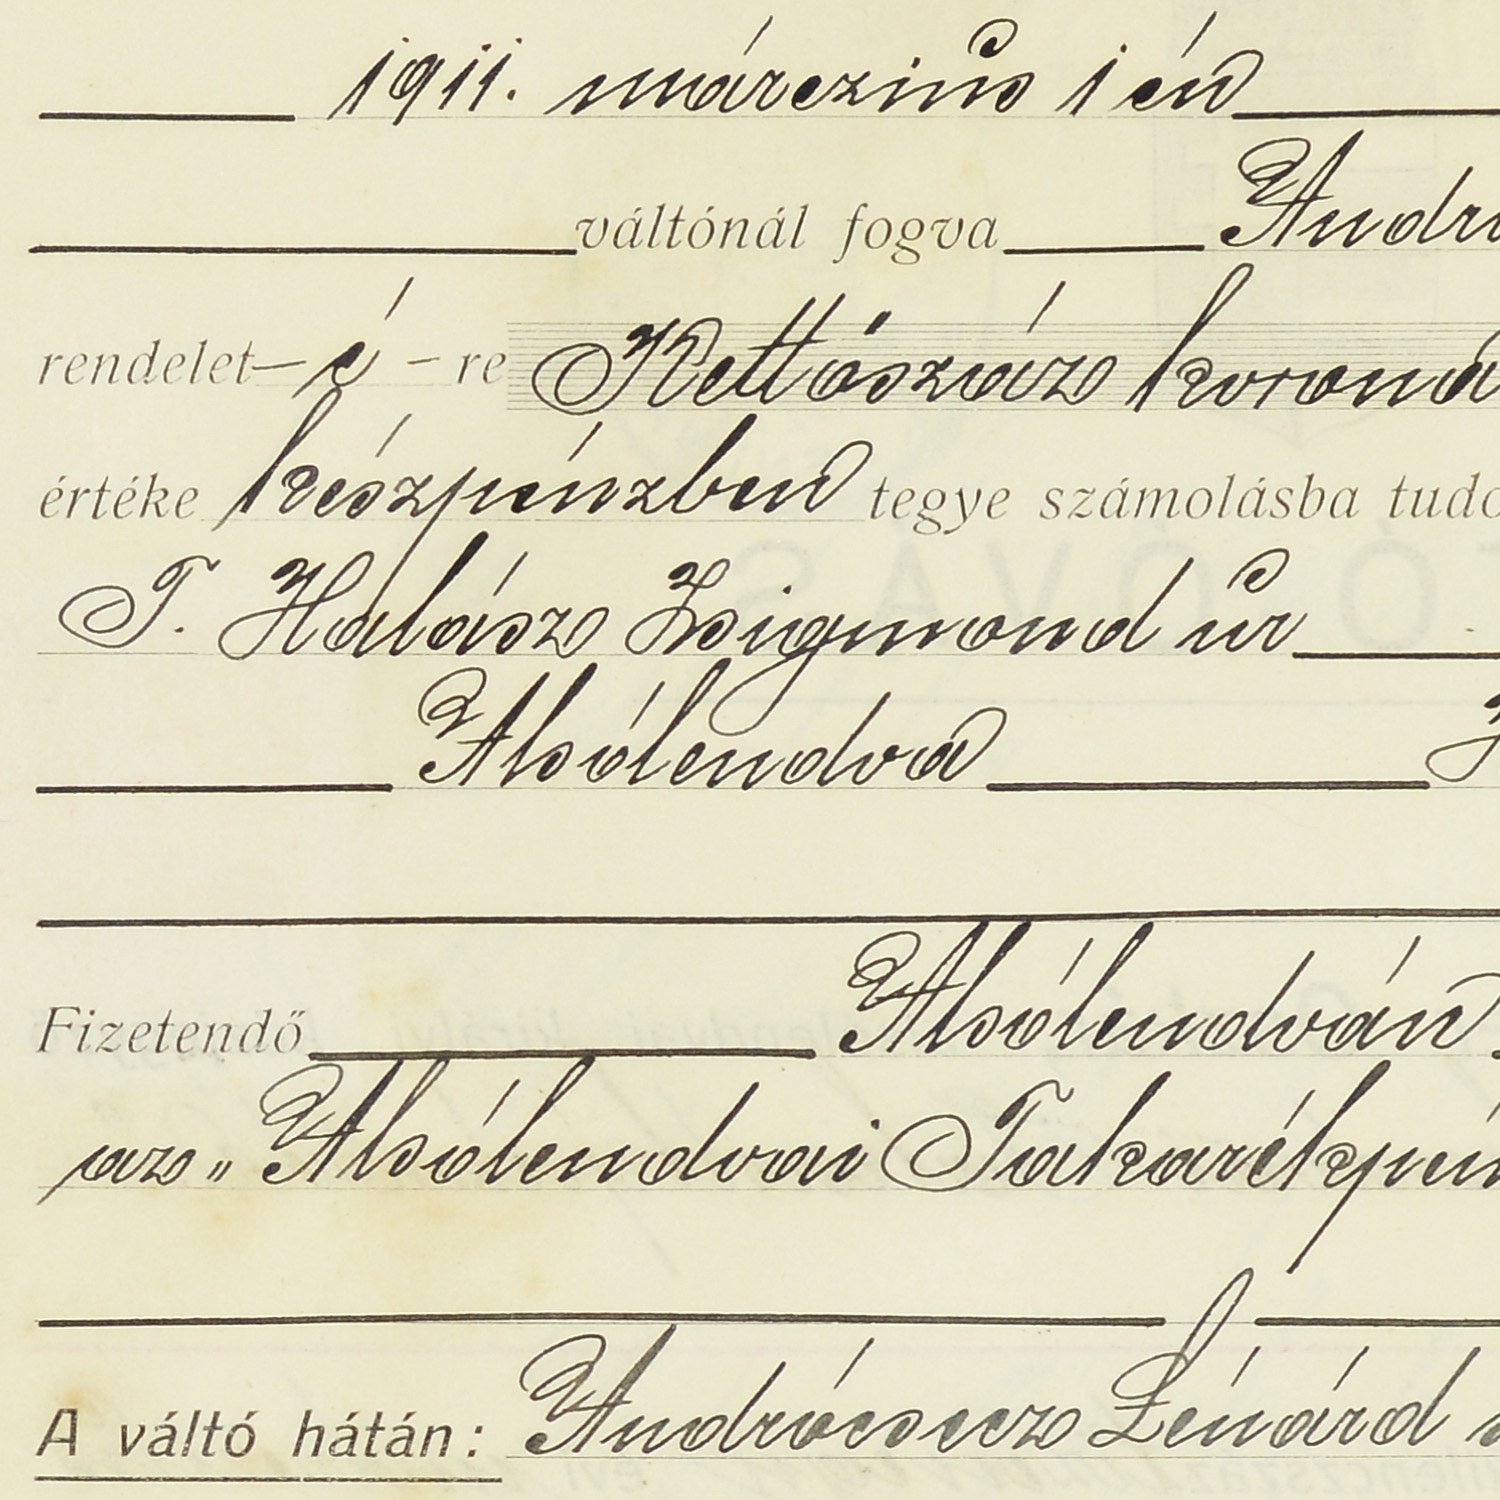 1911. márczius 1 én
váltónál fogva Andró
rendelet – é – re Kettőszáz korona
értéke készpénzben tegye számolásba tudo
T. Halász Zsigmond úr
Alsólendva
Fizetendő Alsólendván
az „Alsólendvai Takarékpén
A váltó hátán: Andrócsecz Lénárd